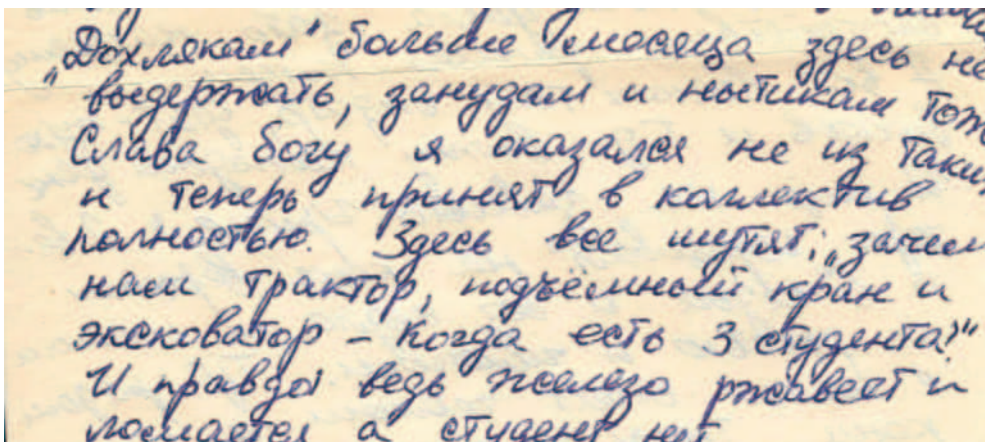 „Дохлякам" больше месяца здесь не
выдержать, занудам и нытикам тож
Слава богу я оказался не из таких
и теперь принят в коллектив
полностью. Здесь все шутят; „зачем
нам трактор, подъёмный кран и
эксковатор – когда есть 3 студента!"
И правда ведь железо ржавеет и
ломается а студент нет